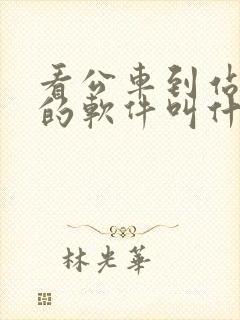 看公車到佔
的軟件叫什
林光華